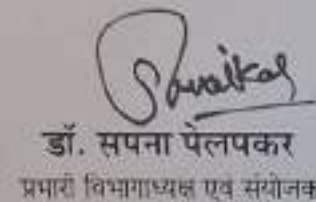 डॉ. सपना पेलपकर
प्रभारी विभागाध्यक्ष एवं संयोजक